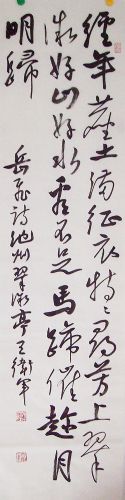 經年塵土滿征衣特〻尋芳上翠
微好山好水看不足馬蹄催趁月
明歸
岳飛詩池州翠微亭王衛軍